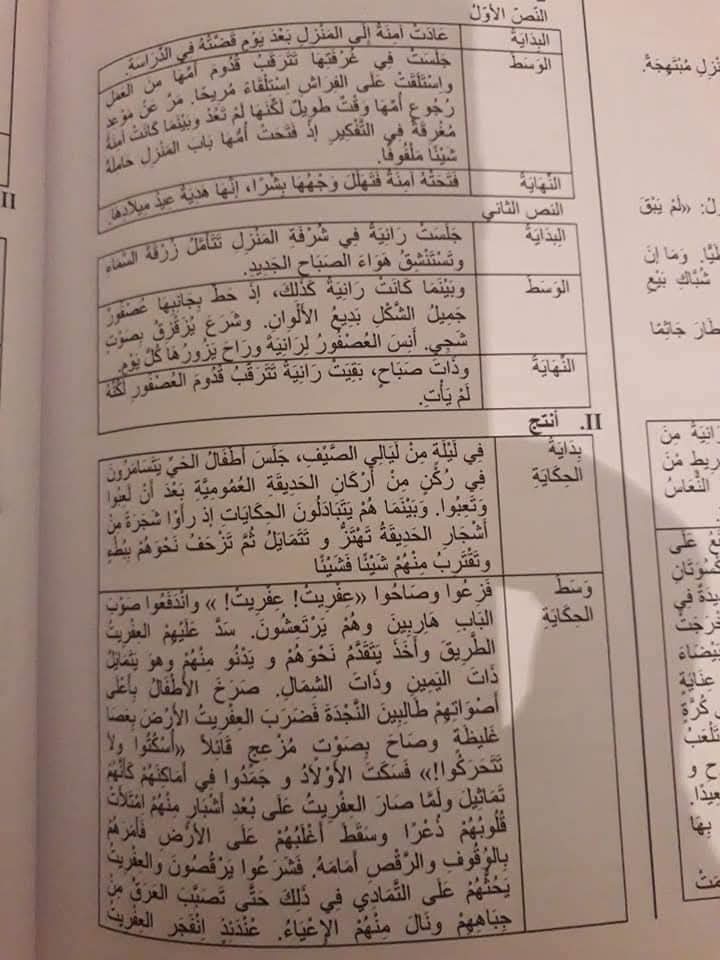 النّصّ الأوّلُ
البِدَايَةُ
عَادَتْ آمِنَةُ إِلَى المَنْزِلِ بَعْدَ يَوْمٍ قَضَّتْهُ فِي الدِّرَاسَةِ.
الوَسَطُ
جَلَسَتْ فِي غُرْفَتِهَا تَتَرَقَّبُ قُدُومَ أُمِّهَا مِن العَمَلِ
وَاسْتَلْقَتْ عَلَى الفِرَاشِ اِسْتِلْقَاءً مُرِيحًا. مَرَّ عَنْ مَوْعِدِ
رُجُوعِ أُمِّهَا وَقْتٌ طَوِيلٌ لَكِنَّهَا لَمْ تَعُدْ وَبَيْنَمَا كَانَتْ آمِنَةُ
مُغْرِقَةً فِي التَّفْكِيرِ إِذْ فَتَحَتْ أُمُّهَا بَابَ المَنْزِلِ حَامِلَةً
شَيْئًا مَلْفُوفًا.
النِّهَايَةُ
فَتَحَتْهُ آمِنَةُ فَتَهَلَّلَ وَجْهُهَا بِشْرًا، إِنَّهَا هَدِيَّةُ عِيدِ مِيلَادِهَا.
النص الثاني
البِدَايَةُ
جَلَسَتْ رَانِيَةُ فِي شُرْفَةِ المَنْزِلِ تَتَأَمَّلُ زُرْقَةَ السَّمَاءِ
وَتَسْتَنْشِقُ هَوَاءَ الصَّبَاحِ الجَدِيدِ.
الوَسَطُ
وَبَيْنَمَا كَانَتْ رَانِيَةُ كَذَلِكَ، إِذْ حَطَّ بِجَانِبِهَا عُصْفُورٌ
جَمِيلُ الشَّكْلِ بَدِيعُ الأَلْوَانِ. وشَرَعَ يُزَقْزِقُ بِصَوْتٍ
شَجِيٍّ. أَنِسَ العُصْفُورُ لِرَانِيَةَ وَرَاحَ يَزُورُهَا كُلَّ يَوْمٍ.
النِّهَايَةُ
وَذَاتَ صَبَاحٍ، بَقِيَتْ رَانِيَةُ تَتَرَقَّبُ قُدُومَ العُصْفُورِ لَكِنَّهُ
لَمْ يَأْتِ.
II. أنتج
بِدَايَةُ
الحِكَايَةِ
فِي لَيْلَةٍ مِنْ لَيَالِي الصَّيْفِ، جَلَسَ أَطْفَالُ الحَيِّ يَتَسَامَرُونَ
فِي رُكْنٍ مِنْ أَرْكَانِ الحَدِيقَةِ العُمُومِيَّةِ بَعْدَ أَنْ لَعِبُوا
وَتَعِبُوا. وَبَيْنَمَا هُمْ يَتَبَادَلُونَ الحِكَايَاتِ إِذ رَأَوْا شَجَرَةً مِنْ
أَشْجَارِ الحَدِيقَةِ تَهْتَزُّ و تَتَمَايَلُ ثُمَّ تَزْحَفُ نَحْوَهُمْ بِبُطْءٍ
وَتَقْتَرِبُ مِنْهُمْ شَيْئًا فَشَيْئًا
وَسَطُ
الحِكَايَةِ
فَزِعُوا وَصَاحُوا «عِفْرِيتٌ! عِفْرِيتٌ! » وانْدَفَعُوا صَوْبَ
البَابِ هَارِبِينَ وَهُمْ يَرْتَعِشُونَ. سَدَّ عَلَيْهِمُ العِفْرِيتُ
الطَّرِيقَ وأَخَذَ يَتَقَدَّمُ نَحْوَهُمْ و يَدْنُو مِنْهُمْ وهوَ يَتَمَايَلُ
ذَاتَ اليَمِينِ وذَاتَ الشِّمَالِ. صَرَخَ الأَطْفَالُ بِأَعْلَى
أَصْوَاتِهِمْ طَالِبِينَ النَّجْدَةَ فَضَرَبَ العِفْرِيتُ الأَرْضَ بِعَصًا
غَلِيظَةٍ وصَاحَ بِصَوْتٍ مُزْعِجٍ قَائِلاً «أُسْكُتُوا ولاَ
تَتَحَرَّكُوا!» فَسَكَتَ الأَوْلاَدُ و جَمَدُوا فِي أَمَاكِنِهِمْ كَأَنَّهُمْ
تَمَاثِيلُ ولَمَّا صَارَ العِفْرِيتُ عَلَى بُعْدِ أَشْبَارٍ مِنْهُمُ امْتَلَأَتْ
قُلُوبُهُمْ ذُعْرًا وسَقَطَ أَغْلَبُهُمْ عَلَى الأَرْضِ فَأَمَرَهُمْ
بِالوُقُوفِ والرَّقْصِ أَمَامَهُ. فَشَرَعُوا يَرْقُصُونَ والعِفْرِيتُ
يَحُثُّهُمْ عَلَى التَّمَادِي فِي ذَلِكَ حَتَّى تَصَبَّبَ العَرَقُ مِنْ
جِبَاهِهِمْ وَنَالَ مِنْهُمُ الإِعْيَاءُ. عِنْدَئِذٍ اِنْفَجَرَ العِفْرِيتُ
II
نْزِلِ مُبْتَهِجَةً.
لُ: «لَمْ يَبْقَ
طِيًّا. وَمَا إِنَ
شُبَّاكِ بَيْعِ
طَارَ جَاثِمًا
رَانِيَةُ مِنَ
رِيطٍ مُنَ
النُّعَاسُ
عُ عَلَى
بَيْضَاءَ
عِنَايَةٍ
كُرَةً
تَلْعَبُ
بِهَا